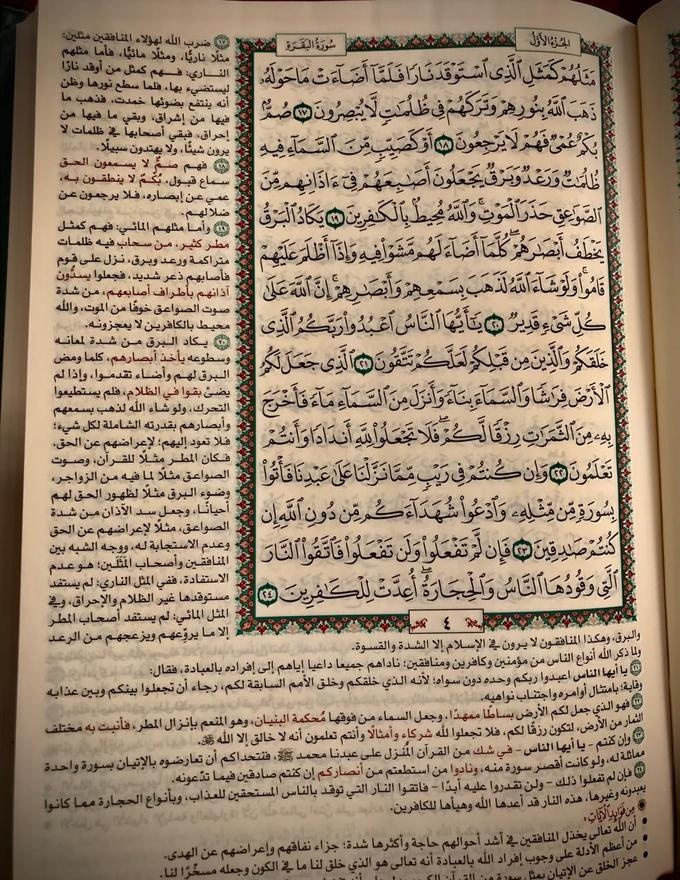 الجزء الأول
سورة البقرة
مَثَلُهُمْ كَمَثَلِ ٱلَّذِى ٱسْتَوْقَدَ نَارًا فَلَمَّآ أَضَآءَتْ مَا حَوْلَهُۥ
ذَهَبَ ٱللَّهُ بِنُورِهِمْ وَتَرَكَهُمْ فِى ظُلُمَٰتٍ لَّا يُبْصِرُونَ ١٧ صُمٌّۢ
بُكْمٌ عُمْىٌ فَهُمْ لَا يَرْجِعُونَ ١٨ أَوْ كَصَيِّبٍ مِّنَ ٱلسَّمَآءِ فِيهِ
ظُلُمَٰتٌ وَرَعْدٌ وَبَرْقٌ يَجْعَلُونَ أَصَٰبِعَهُمْ فِىٓ ءَاذَانِهِم مِّنَ
ٱلصَّوَٰعِقِ حَذَرَ ٱلْمَوْتِ ۚ وَٱللَّهُ مُحِيطٌۢ بِٱلْكَٰفِرِينَ ١٩ يَكَادُ ٱلْبَرْقُ
يَخْطَفُ أَبْصَٰرَهُمْ ۖ كُلَّمَآ أَضَآءَ لَهُم مَّشَوْا۟ فِيهِ وَإِذَآ أَظْلَمَ عَلَيْهِمْ
قَامُوا۟ ۚ وَلَوْ شَآءَ ٱللَّهُ لَذَهَبَ بِسَمْعِهِمْ وَأَبْصَٰرِهِمْ ۚ إِنَّ ٱللَّهَ عَلَىٰ
كُلِّ شَىْءٍ قَدِيرٌ ٢٠ يَٰٓأَيُّهَا ٱلنَّاسُ ٱعْبُدُوا۟ رَبَّكُمُ ٱلَّذِى
خَلَقَكُمْ وَٱلَّذِينَ مِن قَبْلِكُمْ لَعَلَّكُمْ تَتَّقُونَ ٢١ ٱلَّذِى جَعَلَ لَكُمُ
ٱلْأَرْضَ فِرَٰشًا وَٱلسَّمَآءَ بِنَآءً وَأَنزَلَ مِنَ ٱلسَّمَآءِ مَآءً فَأَخْرَجَ
بِهِۦ مِنَ ٱلثَّمَرَٰتِ رِزْقًا لَّكُمْ ۖ فَلَا تَجْعَلُوا۟ لِلَّهِ أَندَادًا وَأَنتُمْ
تَعْلَمُونَ ٢٢ وَإِن كُنتُمْ فِى رَيْبٍ مِّمَّا نَزَّلْنَا عَلَىٰ عَبْدِنَا فَأْتُوا۟
بِسُورَةٍ مِّن مِّثْلِهِۦ وَٱدْعُوا۟ شُهَدَآءَكُم مِّن دُونِ ٱللَّهِ إِن
كُنتُمْ صَٰدِقِينَ ٢٣ فَإِن لَّمْ تَفْعَلُوا۟ وَلَن تَفْعَلُوا۟ فَٱتَّقُوا۟ ٱلنَّارَ
ٱلَّتِى وَقُودُهَا ٱلنَّاسُ وَٱلْحِجَارَةُ ۖ أُعِدَّتْ لِلْكَٰفِرِينَ ٢٤
٤
١٧ ضرب الله لهؤلاء المنافقين مثلين:
مثلًا ناريًّا، ومثلًا مائيًّا، فأما مثلهم
الناري: فهم كمثل من أوقد نارًا
ليستضيء بها، فلما سطع نورها وظن
أنه ينتفع بضوئها خمدت، فذهب ما
فيها من إشراق، وبقي ما فيها من
إحراق، فبقي أصحابها في ظلمات لا
يرون شيئًا، ولا يهتدون سبيلًا.
١٨ فهم صمٌّ لا يسمعون الحق
سماع قبول، بُكْمٌ لا ينطقون به،
عمي عن إبصاره، فلا يرجعون عن
ضلالهم.
١٩ وأما مثلهم المائي: فهم كمثل
مطر كثير، من سحاب فيه ظلمات
متراكمة ورعد وبرق، نزل على قوم
فأصابهم ذعر شديد، فجعلوا يسدُّون
آذانهم بأطراف أصابعهم، من شدة
صوت الصواعق خوفًا من الموت، والله
محيط بالكافرين لا يعجزونه.
٢٠ يكاد البرق من شدة لمعانه
وسطوعه يأخذ أبصارهم، كلما ومض
البرق لهم وأضاء تقدموا، وإذا لم
يضئ بقوا في الظلام، فلم يستطيعوا
التحرك، ولو شاء الله لذهب بسمعهم
وأبصارهم بقدرته الشاملة لكل شيء؛
فلا تعود إليهم؛ لإعراضهم عن الحق.
فكان المطر مثلًا للقرآن، وصوت
الصواعق مثلًا لما فيه من الزواجر،
وضوء البرق مثلًا لظهور الحق لهم
أحيانًا، وجعل سد الآذان من شدة
الصواعق، مثلًا لإعراضهم عن الحق
وعدم الاستجابة له، ووجه الشبه بين
المنافقين وأصحاب المثَلَين؛ هو عدم
الاستفادة، ففي المثل الناري: لم يستفد
مستوقدها غير الظلام والإحراق، وفي
المثل المائي: لم يستفد أصحاب المطر
إلا ما يروِّعهم ويزعجهم من الرعد
والبرق، وهكذا المنافقون لا يرون في الإسلام إلا الشدة والقسوة.
ولما ذكر الله أنواع الناس من مؤمنين وكافرين ومنافقين؛ ناداهم جميعا داعيا إياهم إلى إفراده بالعبادة، فقال:
٢١ يا أيها الناس اعبدوا ربكم وحده دون سواه؛ لأنه الذي خلقكم وخلق الأمم السابقة لكم، رجاء أن تجعلوا بينكم وبين عذابه
وقاية؛ بامتثال أوامره واجتناب نواهيه.
٢٢ فهو الذي جعل لكم الأرض بساطًا ممهدًا، وجعل السماء من فوقها مُحكمة البنيان، وهو المنعم بإنزال المطر، فأنبت به مختلف
الثمار من الأرض، لتكون رزقًا لكم، فلا تجعلوا لله شركاء وأمثالًا وأنتم تعلمون أنه لا خالق إلا الله ﷻ.
٢٣ وإن كنتم - يا أيها الناس - في شك من القرآن المُنزل على عبدنا محمد ﷺ، فنتحداكم أن تعارضوه بالإتيان بسورة واحدة
مماثلة له، ولو كانت أقصر سورة منه، ونادوا من استطعتم من أنصاركم إن كنتم صادقين فيما تدَّعونه.
٢٤ فإن لم تفعلوا ذلك - ولن تقدروا عليه أبدًا - فاتقوا النار التي توقد بالناس المستحقين للعذاب، وبأنواع الحجارة مما كانوا
يعبدونه وغيرها، هذه النار قد أعدها الله وهيأها للكافرين.
من فوائد الآيات:
• أن الله تعالى يخذل المنافقين في أشد أحوالهم حاجة وأكثرها شدة؛ جزاء نفاقهم وإعراضهم عن الهدى.
• من أعظم الأدلة على وجوب إفراد الله بالعبادة أنه تعالى هو الذي خلق لنا ما في الكون وجعله مسخَّرًا لنا.
• عجز الخلق عن الإتيان بمثل سورة من القرآن